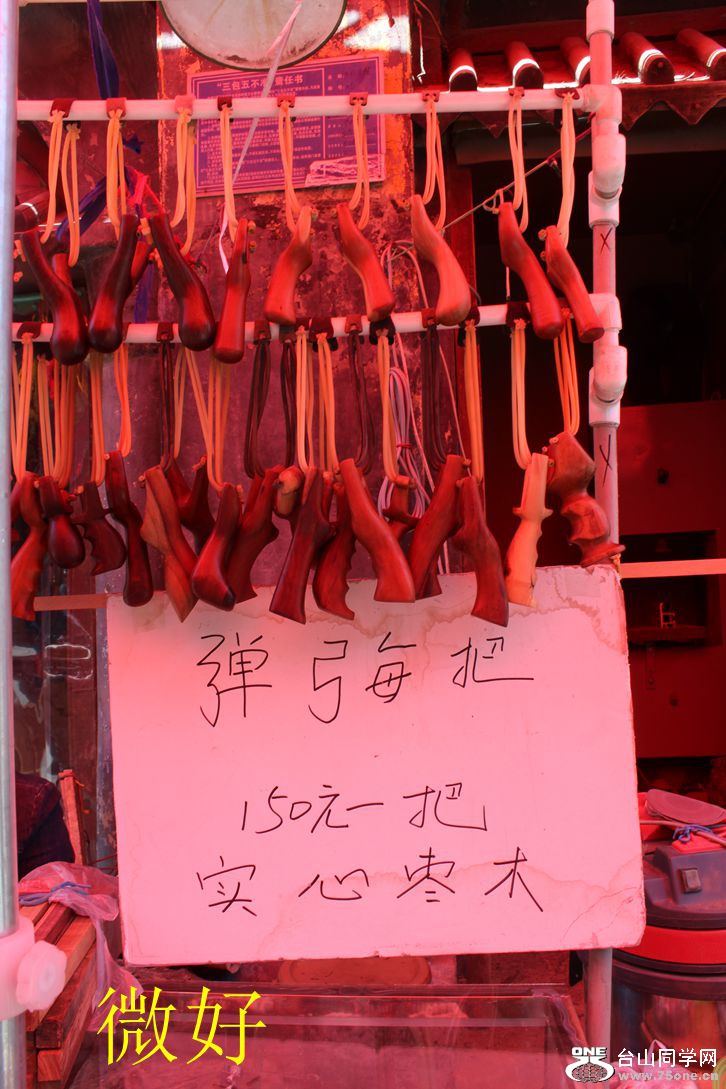 “三包五不准责任书
弹弓每把
150元一把
实心枣木
微好
ONE
台山同学网
www.75one.cn